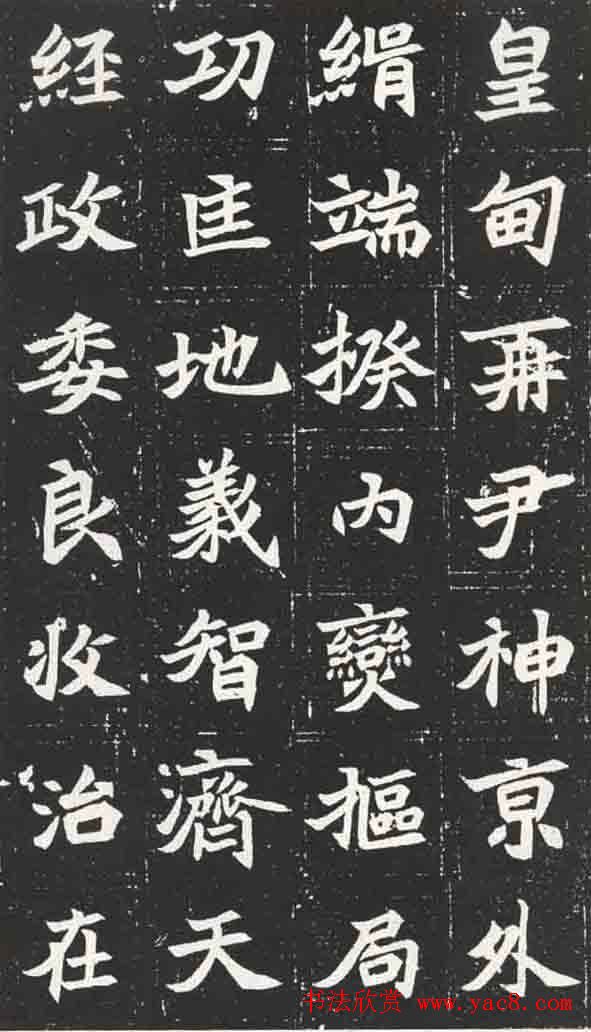 皇甸再尹神京外
緝端揆內爕摳局
功匡地義智濟天
経政委良收治在
书法欣赏 www.yac8.com